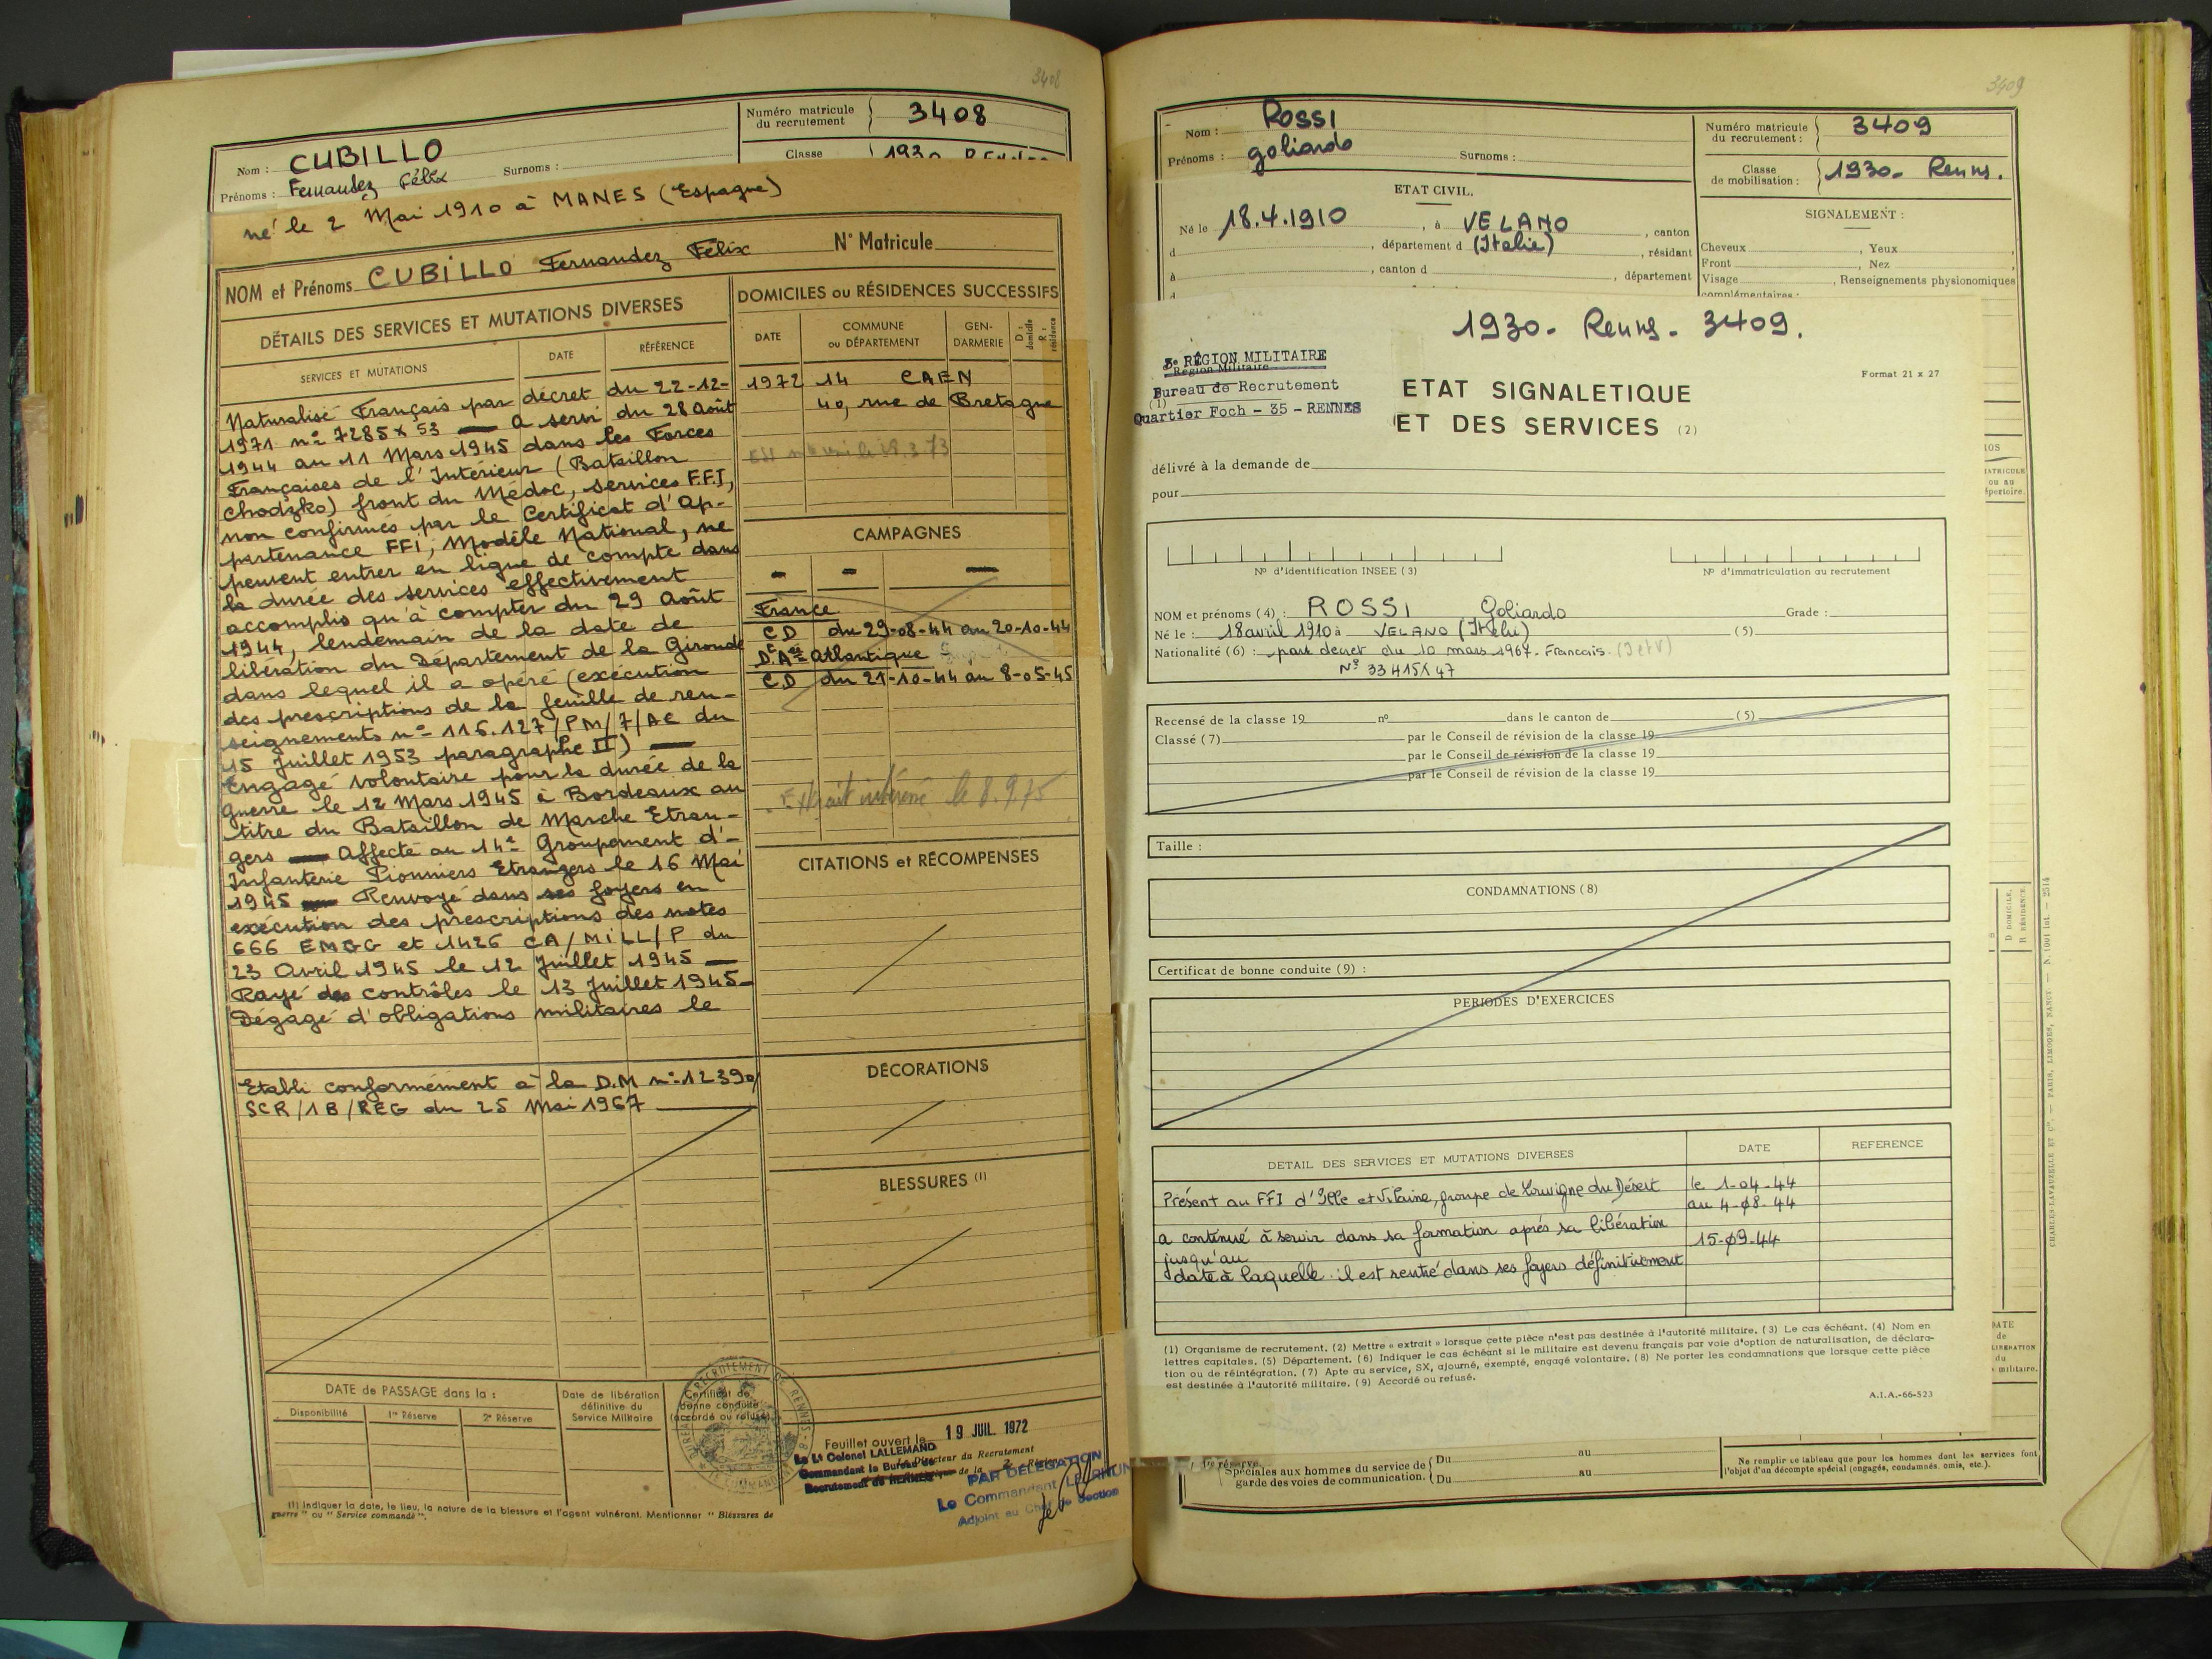 3408
Nom : CUBILLO
Prénoms : Fernandez Félix Surnoms :
Numéro matricule du recrutement 3408
Classe 1930
né le 2 Mai 1910 à MANES (Espagne)
NOM et Prénoms CUBILLO Fernandez Félix N° Matricule
DÉTAILS DES SERVICES ET MUTATIONS DIVERSES
SERVICES ET MUTATIONS DATE RÉFÉRENCE
Naturalisé Français par décret du 22-12-
1971 n° 7285 x 53 — a servi du 28 Août
1944 au 11 Mars 1945 dans les Forces
Françaises de l'Intérieur (Bataillon
Chodzko) front du Médoc, services F.F.I,
non confirmés par le Certificat d'Ap-
partenance FFI, Modèle National, ne
peuvent entrer en ligne de compte dans
la durée des services effectivement
accomplis qu'à compter du 29 Août
1944, lendemain de la date de
libération du Département de la Gironde
dans lequel il a opéré (exécution
des prescriptions de la feuille de ren-
seignements n° 116.127/PM/7/AE du
15 Juillet 1953 paragraphe II) —
Engagé volontaire pour la durée de la
guerre le 12 Mars 1945 à Bordeaux au
titre du Bataillon de Marche Etran-
gers — Affecté au 14e Groupement d'-
Infanterie Pionniers Etrangers le 16 Mai
1945 — Renvoyé dans ses foyers en
exécution des prescriptions des notes
666 EMGG et 1426 CA/MILL/P du
23 Avril 1945 le 12 Juillet 1945 —
Rayé des contrôles le 13 Juillet 1945 —
Dégagé d'obligations militaires le
Etabli conformément à la D.M n° 12390/
SCR/1B/REG du 25 Mai 1967
DOMICILES ou RÉSIDENCES SUCCESSIFS
DATE COMMUNE ou DÉPARTEMENT GEN-DARMERIE D : domicile R : résidence
1972 14 CAEN
40, rue de Bretagne
CAMPAGNES
France
CD du 29-08-44 au 20-10-44
Atlantique
CD du 21-10-44 au 8-05-45
Extrait le 8.9.75
CITATIONS et RÉCOMPENSES
DÉCORATIONS
BLESSURES (1)
DATE de PASSAGE dans la :
Disponibilité 1re Réserve 2e Réserve
Date de libération définitive du Service Militaire
Certificat de bonne conduite (accordé ou refusé)
Feuillet ouvert le 19 JUIL. 1972
Le Lt Colonel LALLEMAND
Commandant le Bureau de
Recrutement de RENNES
Directeur du Recrutement
PAR DELEGATION
Le Commandant
Adjoint au Chef de Section
(1) Indiquer la date, le lieu, la nature de la blessure et l'agent vulnérant. Mentionner " Blessures de
guerre " ou " Service commandé ".
3409
Nom : ROSSI
Prénoms : goliardo Surnoms :
Numéro matricule du recrutement : 3409
Classe de mobilisation : 1930 - Renns.
ETAT CIVIL.
Né le 18.4.1910, à VELANO, canton
d , département d (Italie), résidant
à , canton d , département
SIGNALEMENT :
Cheveux , Yeux ,
Front , Nez ,
Visage , Renseignements physionomiques
complémentaires :
1930 - Renns - 3409.
3e RÉGION MILITAIRE
Région Militaire
Bureau de Recrutement
(1)
Quartier Foch - 35 - RENNES
Format 21 x 27
ETAT SIGNALETIQUE
ET DES SERVICES (2)
délivré à la demande de
pour
N° d'identification INSEE (3) N° d'immatriculation au recrutement
NOM et prénoms (4) : ROSSI Goliardo Grade :
Né le : 18 avril 1910 à VELANO (Italie) (5)
Nationalité (6) : par décret du 10 mars 1967. Francais.
N° 33415X47
Recensé de la classe 19 n° dans le canton de (5)
Classé (7) par le Conseil de révision de la classe 19
par le Conseil de révision de la classe 19
par le Conseil de révision de la classe 19
Taille :
CONDAMNATIONS (8)
Certificat de bonne conduite (9) :
PERIODES D'EXERCICES
DETAIL DES SERVICES ET MUTATIONS DIVERSES DATE REFERENCE
Présent au FFI d'Ille et Vilaine, groupe de Louvigné du Désert le 1-04-44
au 4-08-44
a continué à servir dans sa formation après sa libération
jusqu'au 15-09-44
date à laquelle il est rentré dans ses foyers définitivement
(1) Organisme de recrutement. (2) Mettre « extrait » lorsque cette pièce n'est pas destinée à l'autorité militaire. (3) Le cas échéant. (4) Nom en
lettres capitales. (5) Département. (6) Indiquer le cas échéant si le militaire est devenu français par voie d'option de naturalisation, de déclara-
tion ou de réintégration. (7) Apte au service, SX, ajourné, exempté, engagé volontaire. (8) Ne porter les condamnations que lorsque cette pièce
est destinée à l'autorité militaire. (9) Accordé ou refusé.
A.I.A.-66-523
Spéciales aux hommes du service de garde des voies de communication. Du au
Du au
Ne remplir ce tableau que pour les hommes dont les services font
l'objet d'un décompte spécial (engagés, condamnés, omis, etc.).
CHARLES-LAVAUZELLE ET Cie. — PARIS, LIMOGES, NANCY.